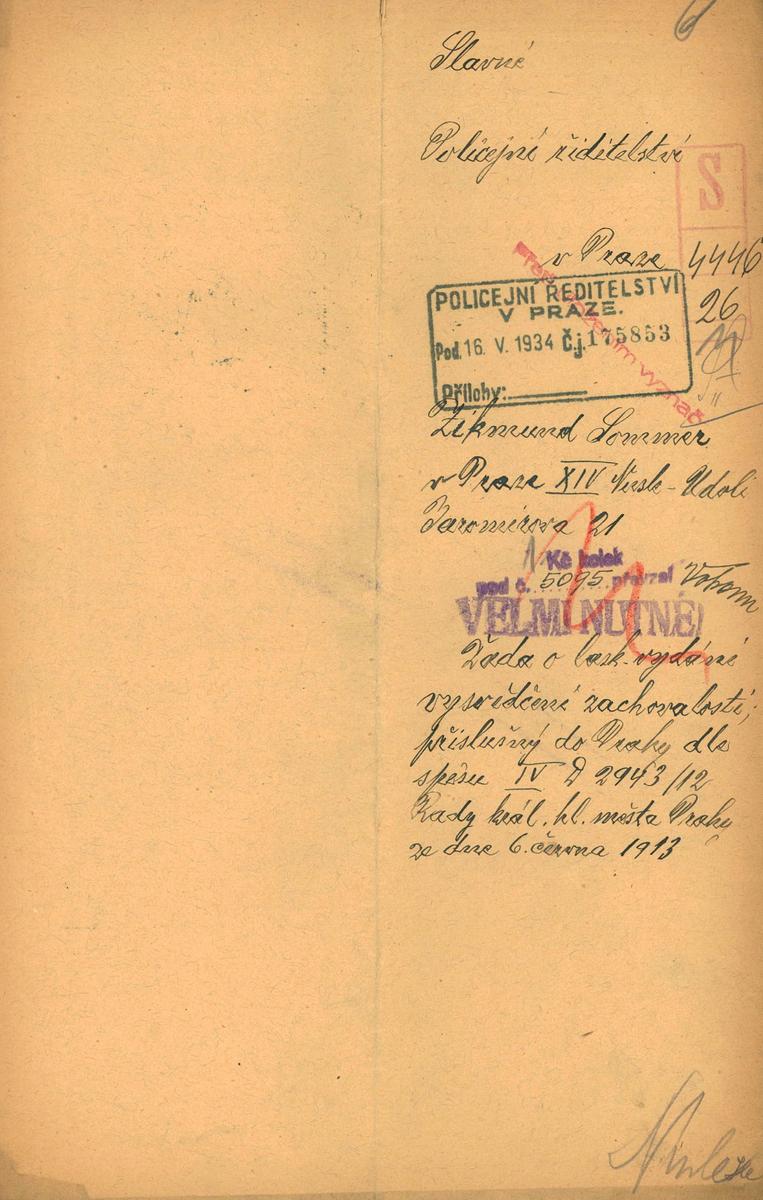 6
Slavné
Policejní řiditelství
S
v Praze
4446
26
POLICEJNÍ ŘEDITELSTVÍ
V PRAZE.
Pod. 16. V. 1934 Čj. 175853
Přílohy:
Zikmund Sommer
v Praze XIV Nusle-Udolí
Jaromírova 21
1 Kč kolek
pod č. 5095 převzal
VELMI NUTNÉ!
Žáda o lask. vydání
vysvědčení zachovalosti;
příslušný do Prahy dle
spisu IV D 2943/12
Rady král. hl. města Prahy
ze dne 6. června 1913